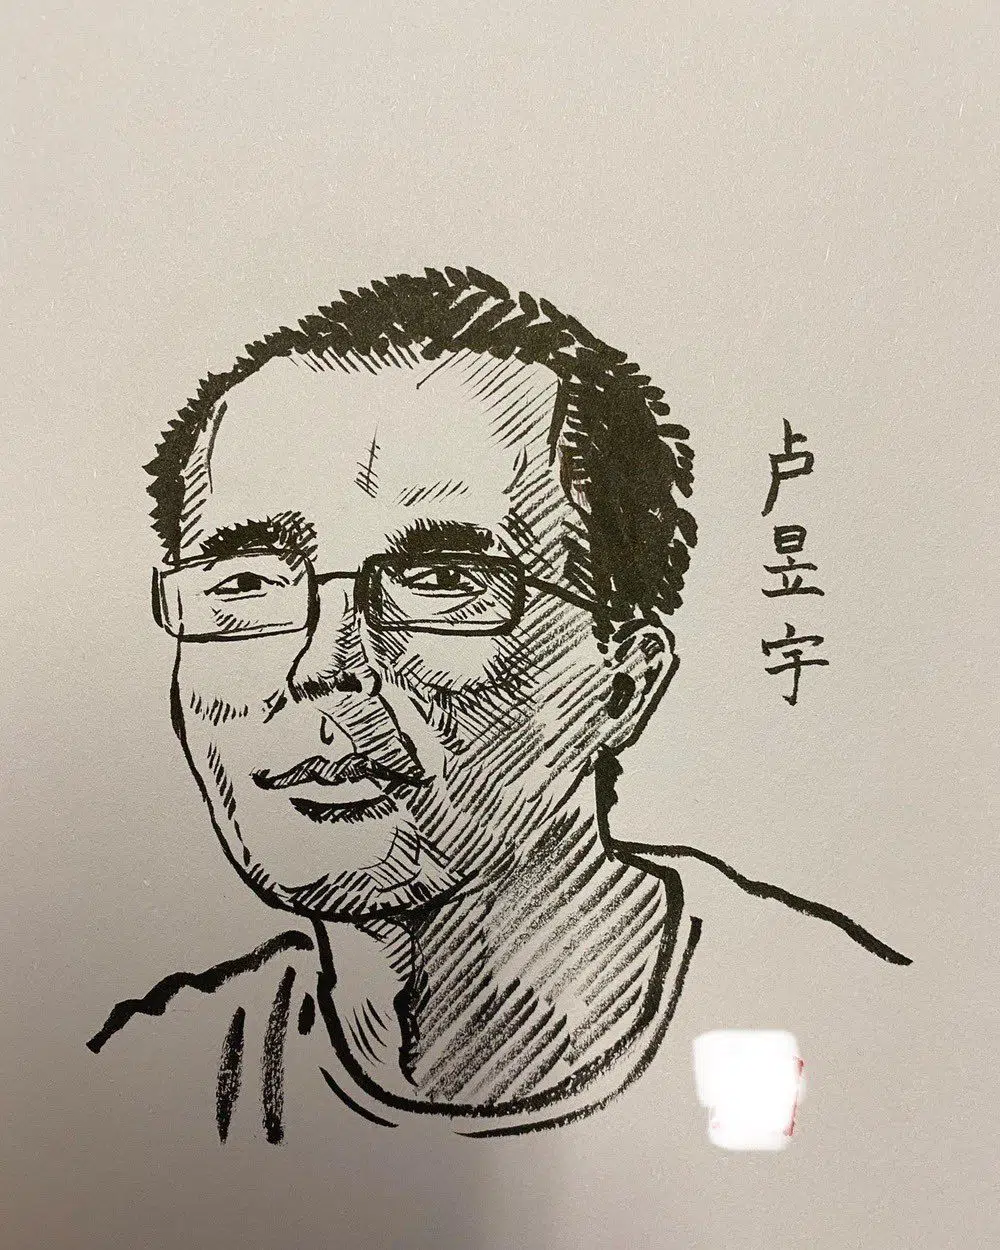 卢昱宇